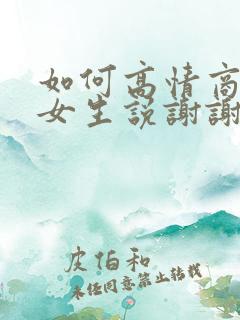 如何高情商
女生说謝謝
皮伯和
未经同意禁止转载